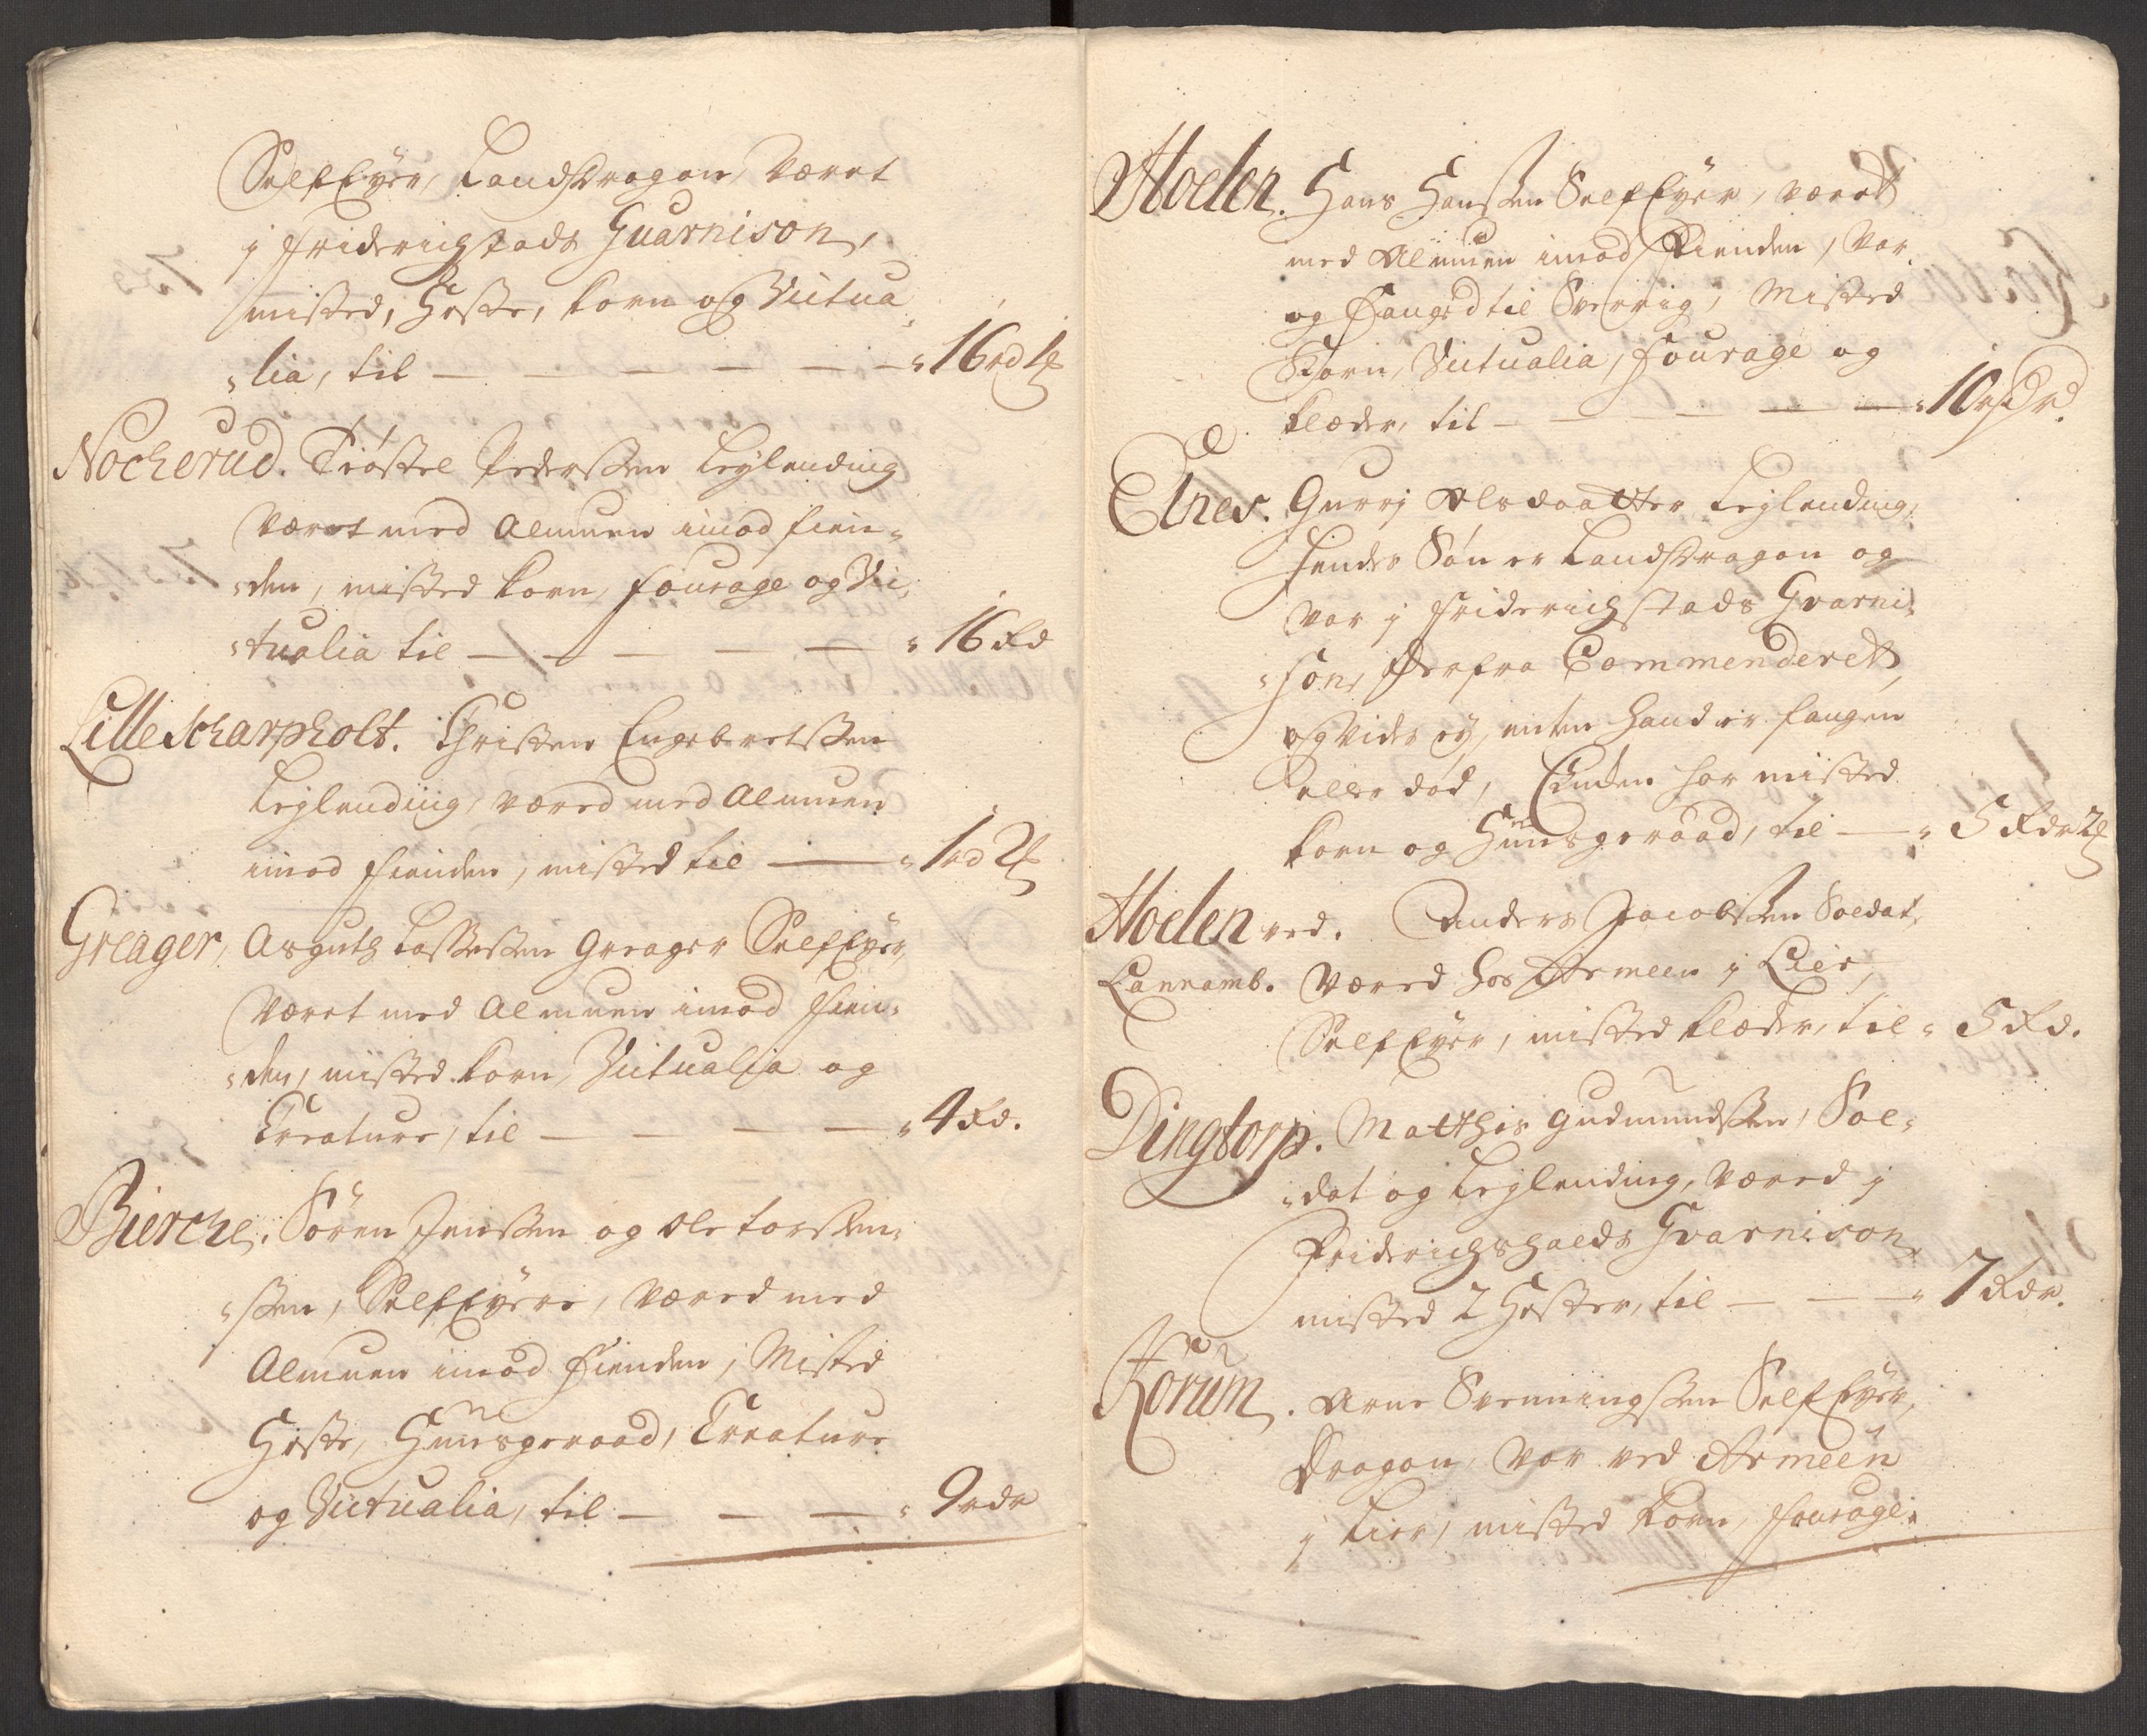 SelfEyer, Landdragon, Været
j Friderichstads Guarnison,
misted, Heste, Korn og Victua
lia, til — — — — — — 16 rd 1
Nocherud. Trøstel Pedersen Leylending
Været med Almuen imod fien-
den, misted Korn, fourage og Vi-
tualia til — — — — — 16 Rd
Lille Scharpholt. Christen Engebretsen
Leylending, været med Almuen
imod fienden, misted til — 1 rd 2
Greager, Asguth Lassesen Greager SelfEyer,
Været med Almuen imod fien-
den, misted Korn, Victualia og
Creature, til — — — — 4 Rd.
Bierche. Sören Jensen og Ole Torsten-
sen, SelfEyere, Været med
Almuen imod Fienden, Misted
Heste, Huusgeraad, Creature
og Victualia, til — — — 9 rdr
Moelen. Hans Hansen SelfEyer, været
med Almuen imod Fienden, Var
og Fanged til Sverrig, Misted
Korn, Victualia, fourage og
klæder, til — — — — — 10
Elnes. Gurrj Olsdaatter Leylending,
hendes Søn er Landdragon og
var j Friderichstads Gvarni-
son, derfra Commenderett,
og vides ej, enten hand er fangen
eller död, Enken har misted
Korn og Huusgeraad, til — 5 Rdr 2
Moelen ved. Anders Jacobsen Soldat,
Lannamb. Været hos Armeen j Lier,
SelfEyer, misted klæder, til 5 Rd.
Dingtorp. Matthis Gudmundsen, Sol-
dat og Leylending, Været j
Friderichshalds Gvarnison,
misted 2 Hester, til — — 7 Rdr.
Korum. Arne Svenningsen SelfEyer,
Dragon, Var ved Armeen
j Lier, misted Korn, fourage